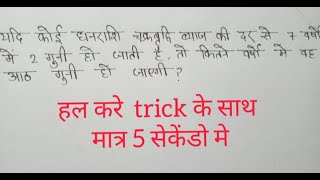 यदि कोई धनराशि चक्रवृद्धि ब्याज की दर से 7 वर्षो
मे 2 गुनी हो जाती है, तो कितने वर्षो मे वह
आठ गुनी हो जाएगी ?
हल करे trick के साथ
मात्र 5 सेकेंडो मे